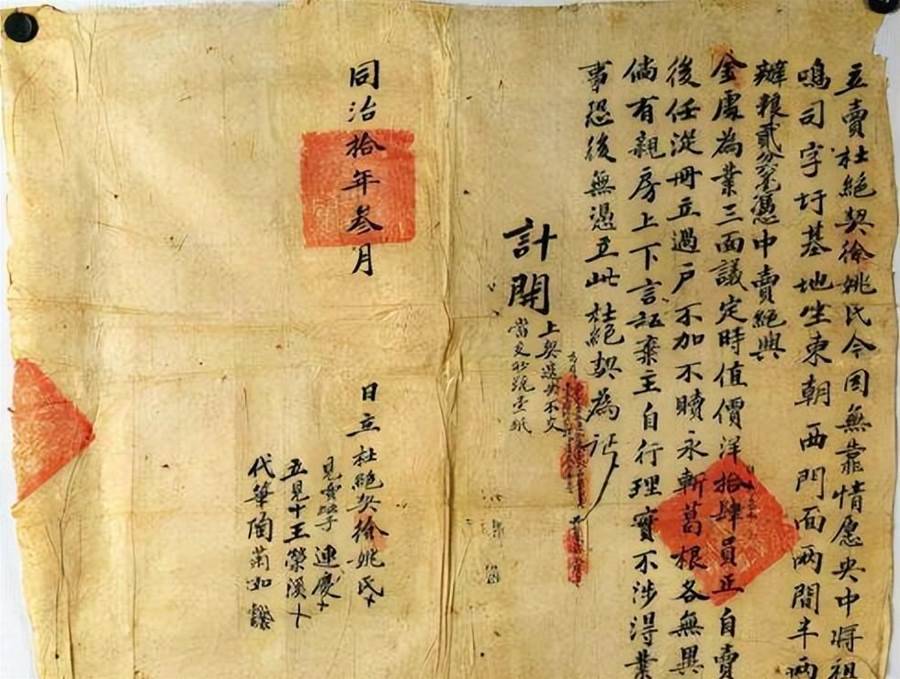 立賣杜絕契徐姚氏今因無靠情愿央中將祖
鳴司字圩基地坐東朝西門面兩間半兩
辦粮貳分憑中賣絕與
金處為業三面議定時值價洋拾肆員正自賣
後任從冊立過戶不加不贖永斬葛根各無異
倘有親房上下言話棄主自行理實不涉得業
事恐後無憑立此杜絕契為
計開
上契遺失不交
當交抄號壹紙
同治拾年叁月
日立杜絕契徐姚氏十
見賣 連慶十
王榮溪十
代筆陶菊如